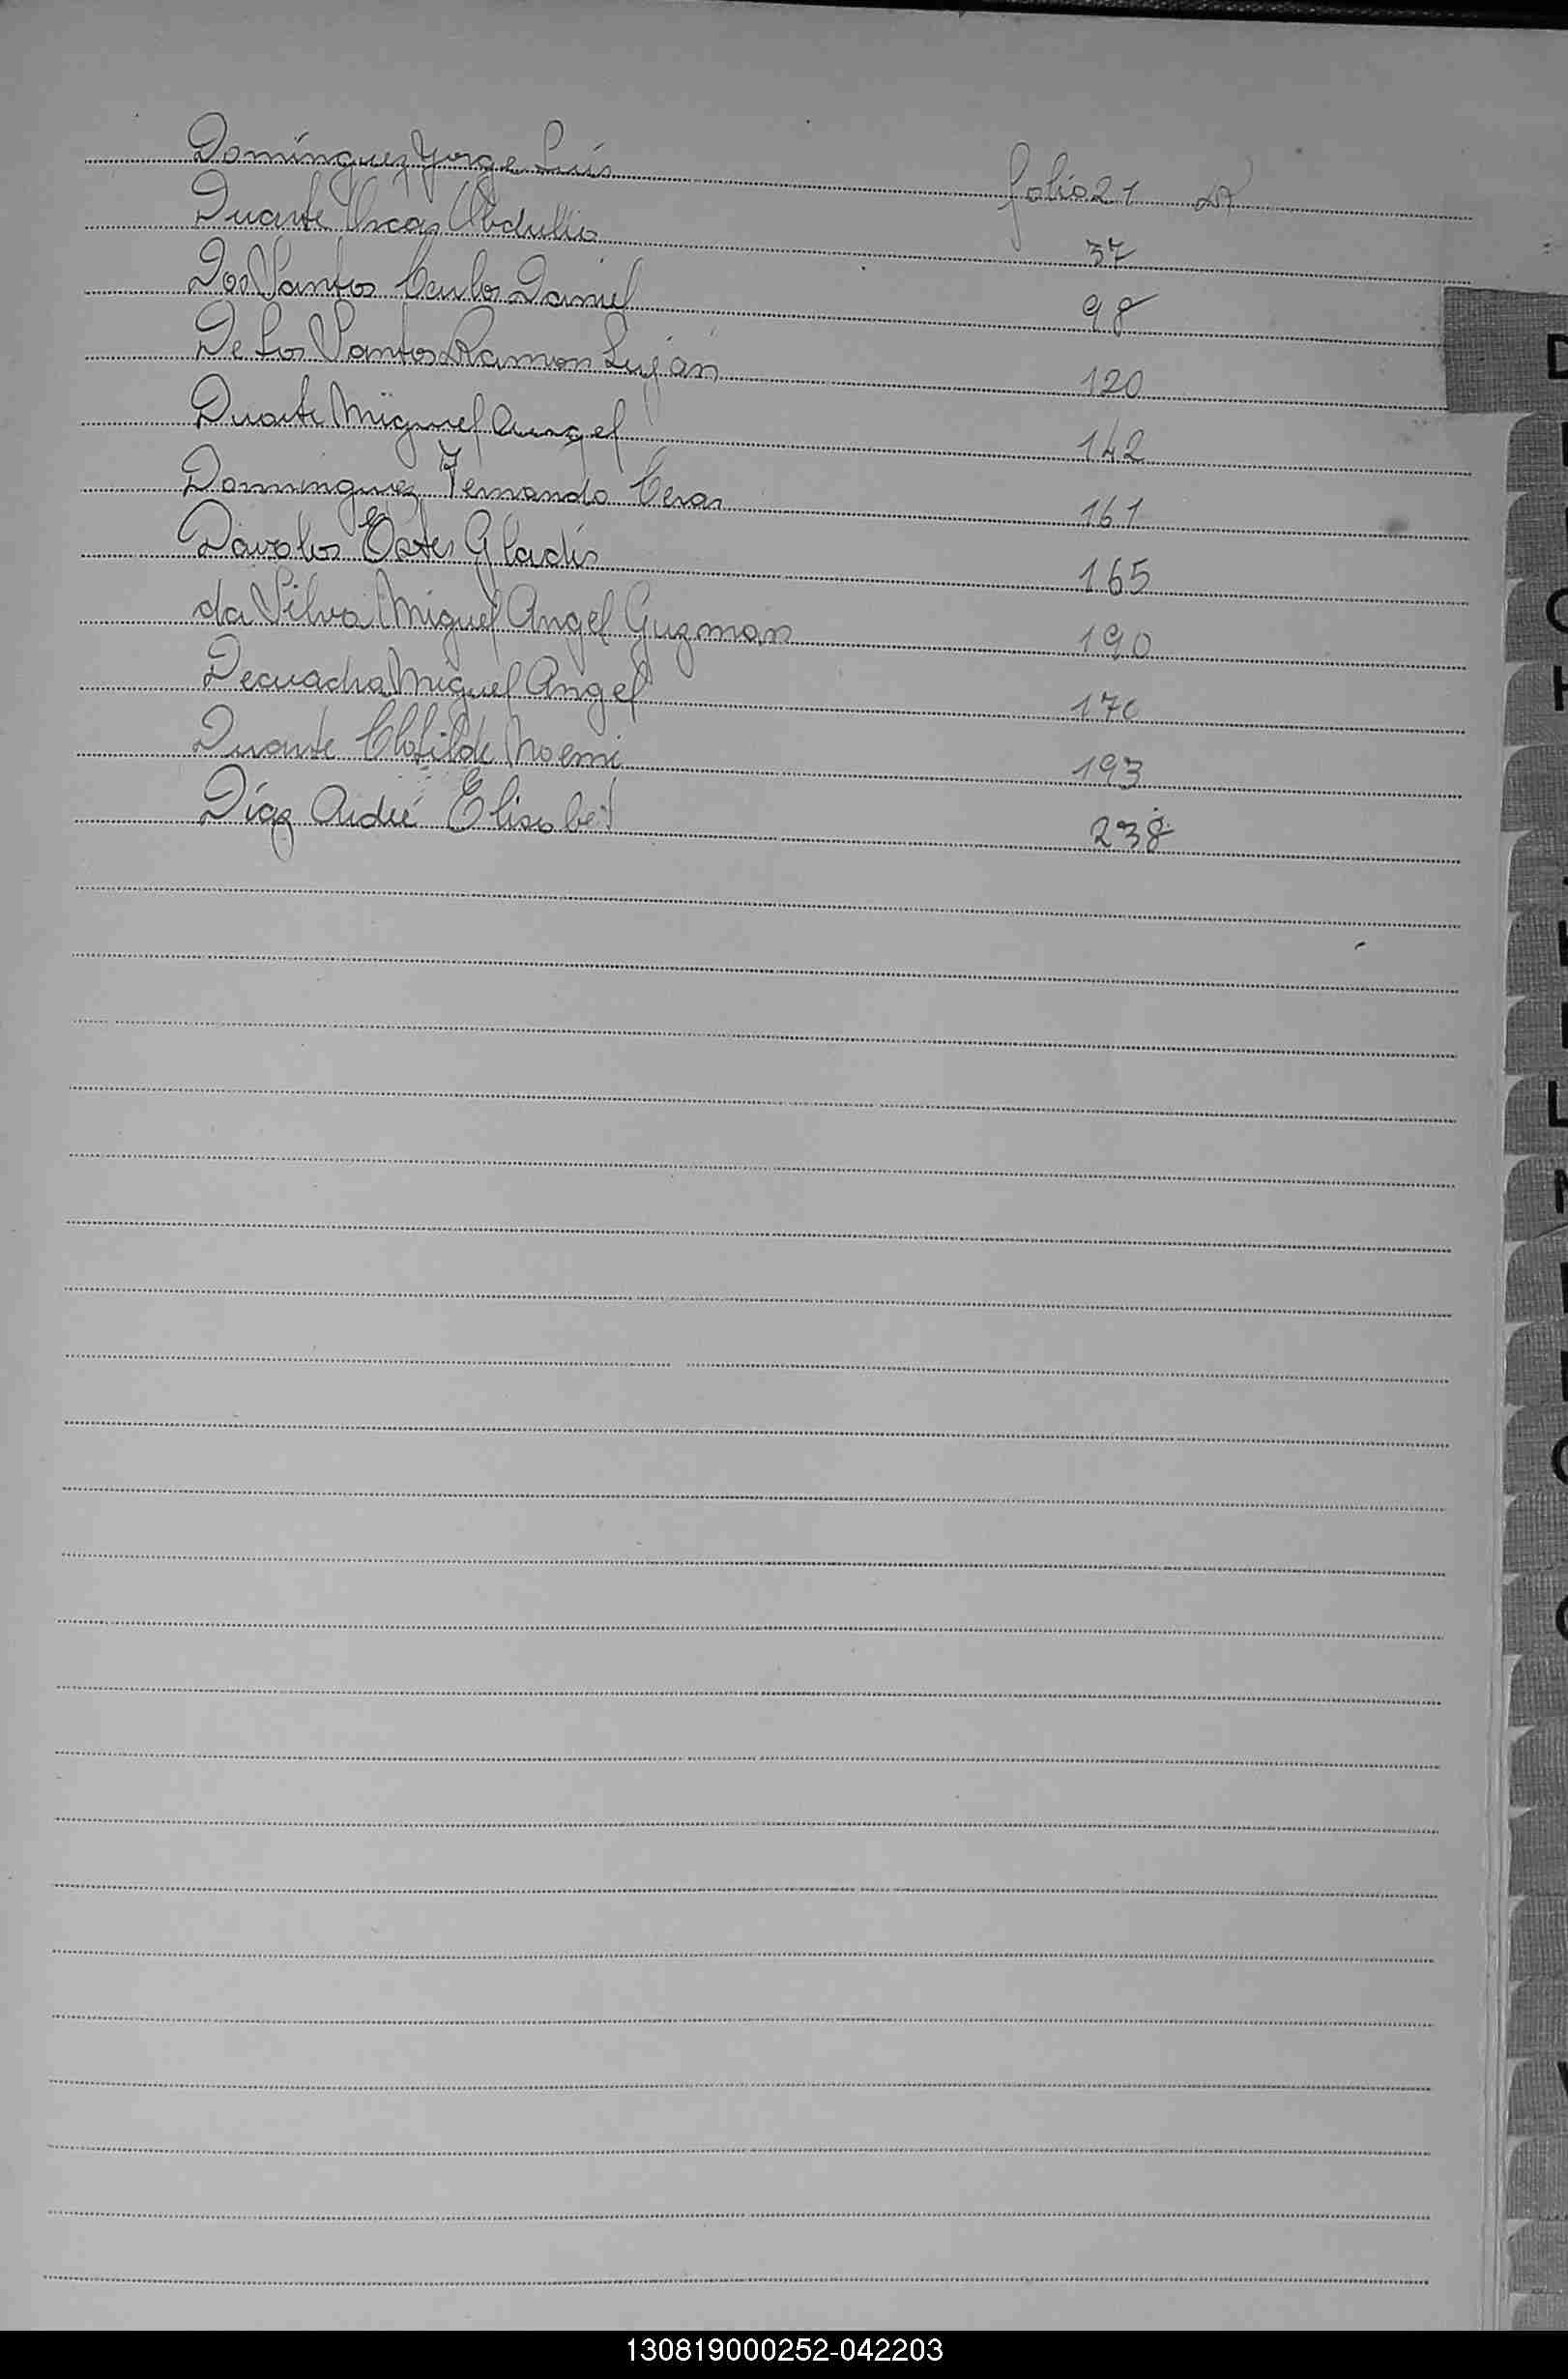 Domínguez Jorge Luis folio 21
Duarte Oscar Obdulio 37
Dos Santos Carlos Daniel 98
De Los Santos Ramon Luján 120
Duarte Miguel Angel 142
Dominguez Fernando Cesar 161
Davalos Ester Gladis 165
da Silva Miguel Angel Guzman 190
Miguel Angel 170
Duarte Clotilde Noemi 193
Díaz Elisabet 238
D
L
130819000252-042203